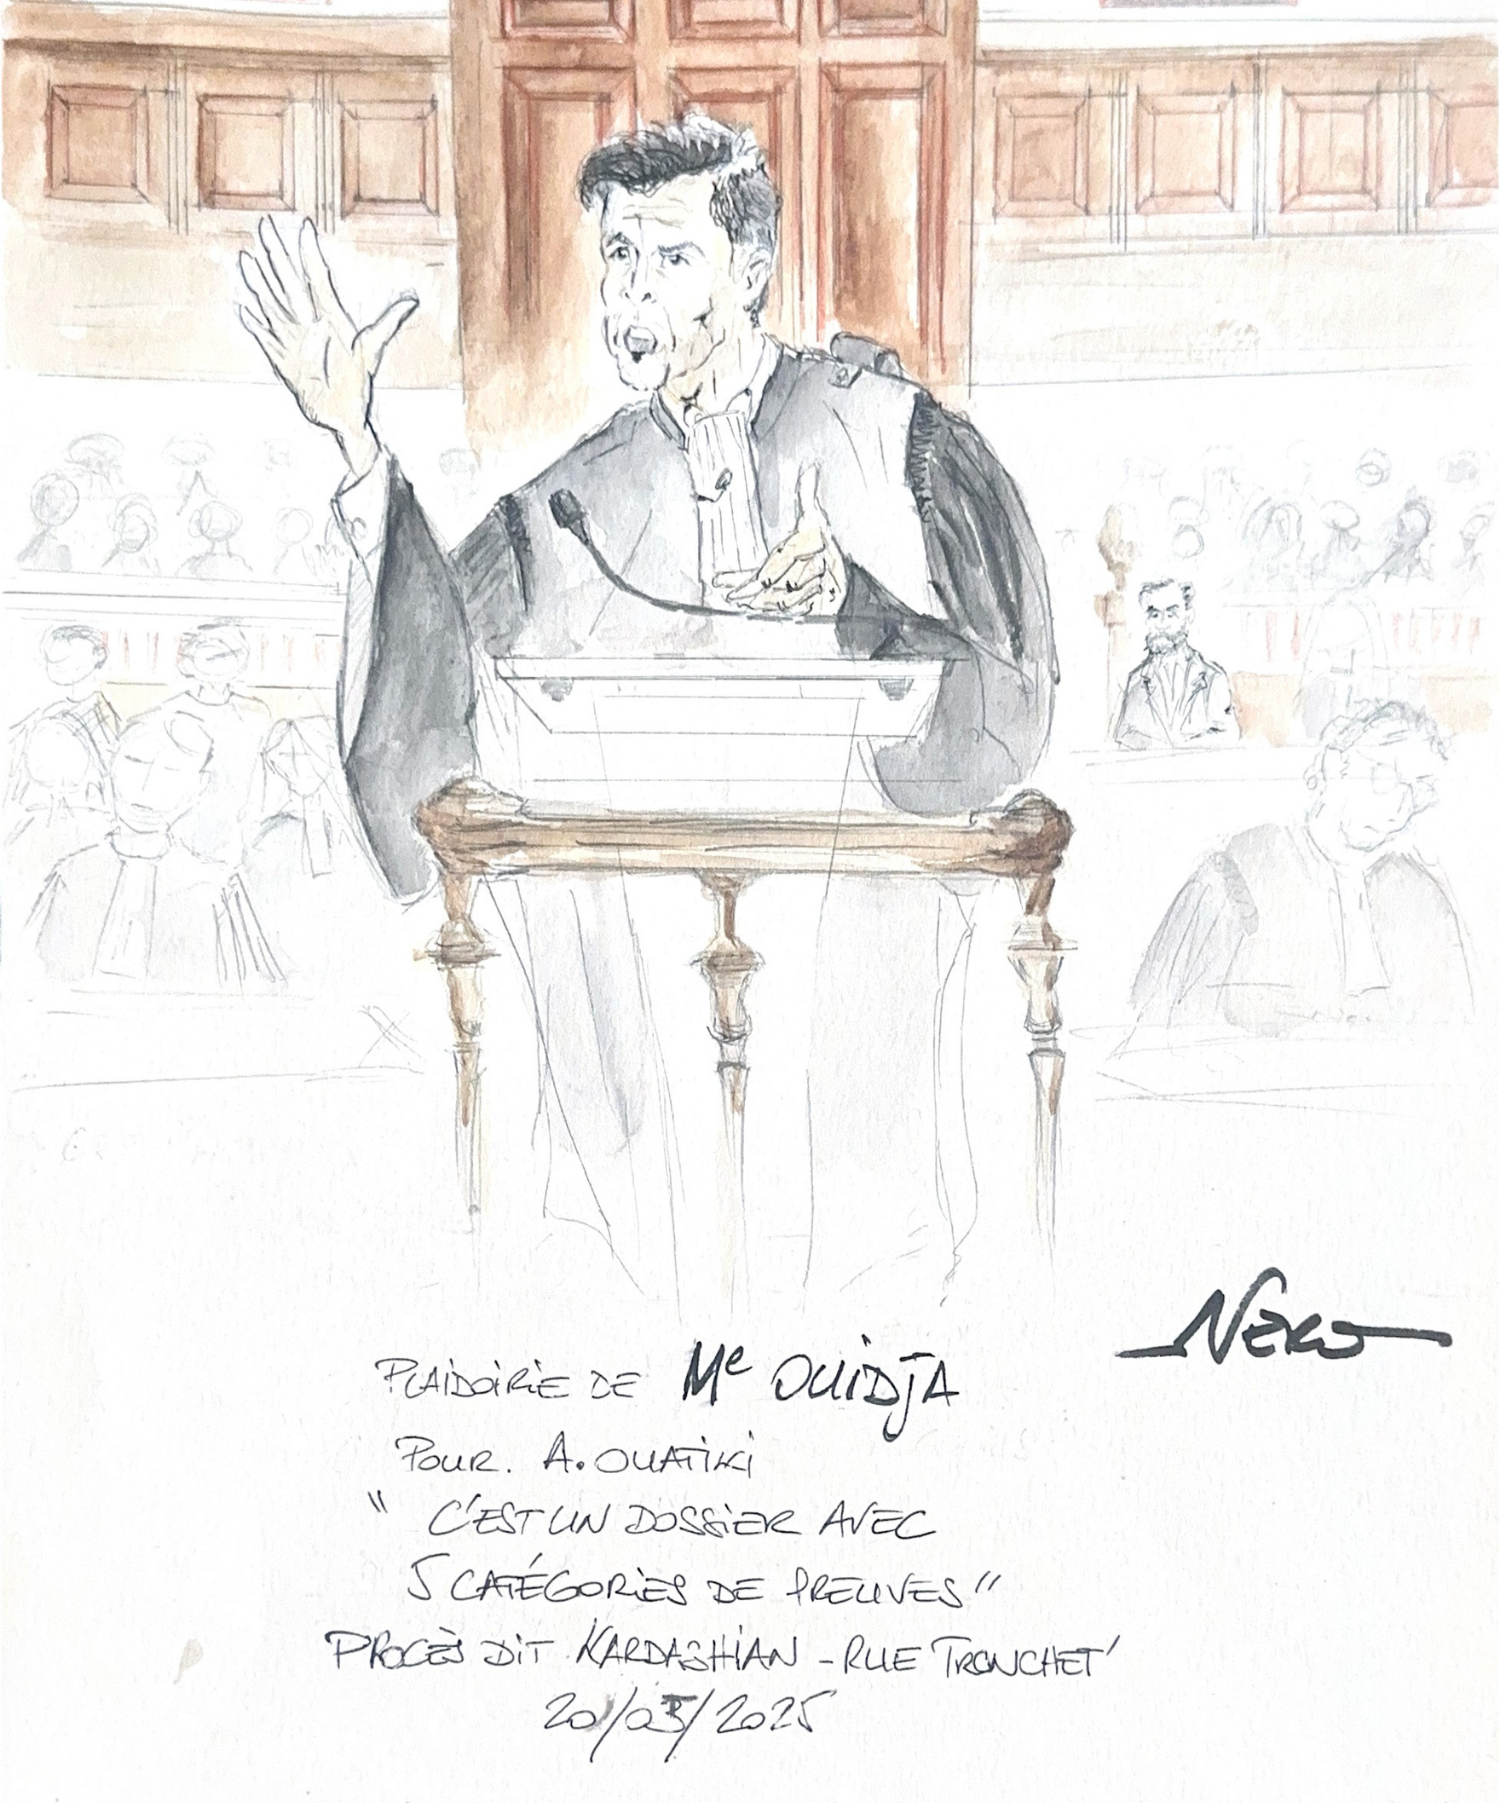 NEKO
PLAIDOIRIE DE Me OUIDJA
POUR. A. OUATIKI
" C'EST UN DOSSIER AVEC
5 CATÉGORIES DE PREUVES "
PROCÈS DIT KARDASHIAN - RUE TRONCHET'
20/05/2025